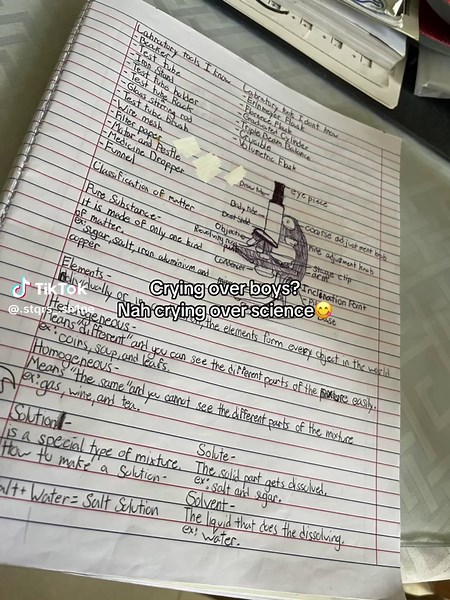 Laboratory tools I know
- Beaker
- Test tube
- Iron Stand
- Test tube holder
- Test tube Rack
- Glass stirring rod
- Test tube brush
- Wire mesh
- Filter paper
- Motar and Pestle
- Medicine Dropper
- Funnel
Laboratory tools I dont know
- Erlenmeyer Flask
- Florence Flask
- Graduated Cylinder
- Triple Beam Balance
- Crucible
- Volumetric Flask
Draw tube
Body tube
Objective
Revolving
Condenser
eye piece
coarse adjustment knob
Fine adjustment knob
Stage clip
arm
Inclination Point
Base
Classification of matter
Pure Substance-
it is made of only one kind
of matter.
ex: sugar, salt, iron aluminium and
copper
Crying over boys?
Nah crying over science😋
TikTok
Elements-
the elements form every object in the world
Heterogeneous-
Means "different" and you can see the different parts of the mixture easily.
ex: coins, soup, and leafs.
Homogeneous-
Mean "the same" and you cannot see the different parts of the mixture
ex: gas, wine, and tea.
Solution-
is a special type of mixture.
How to make a Solution-
alt + Water = Salt Solution
Solute-
The solid part gets dissolved.
ex: salt and sugar.
Solvent-
The liquid that does the dissolving.
ex: water.